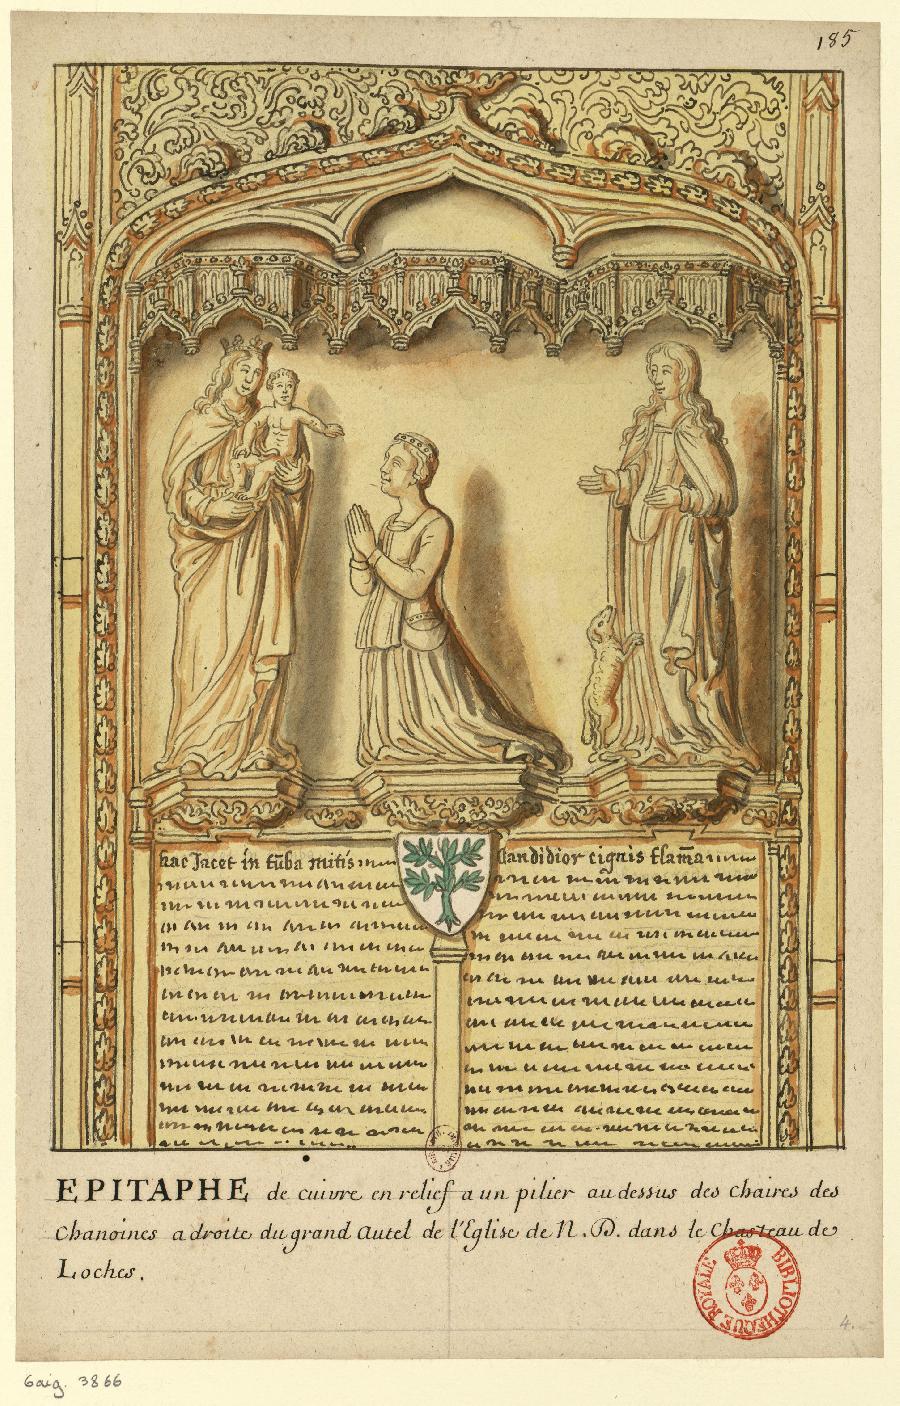 185
hac Jacet in tūba mitis
Candidior cignis flam̄a
EPITAPHE de cuivre en relief a un pilier au dessus des chaires des
Chanoines a droite du grand Autel de l'Eglise de N. D. dans le Chasteau de
Loches.
BIBLIOTHEQUE ROYALE
4.
Gaig. 3866